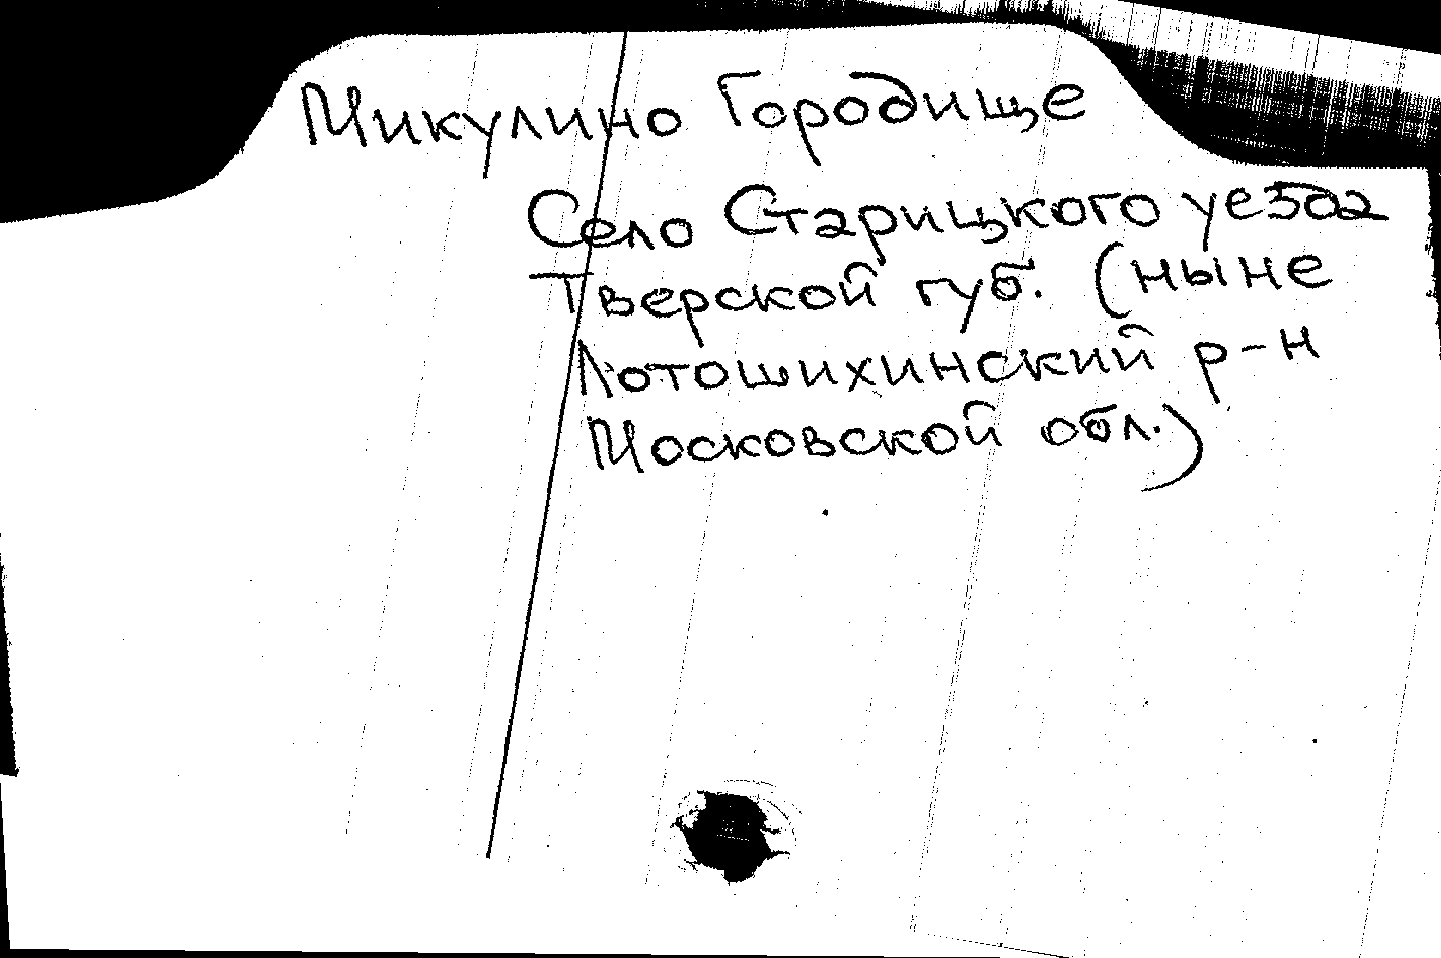 Микулино Городище
Село Старицкого уезда
Тверской губ. (ныне
Лотошихинский р-н
Московской обл.)